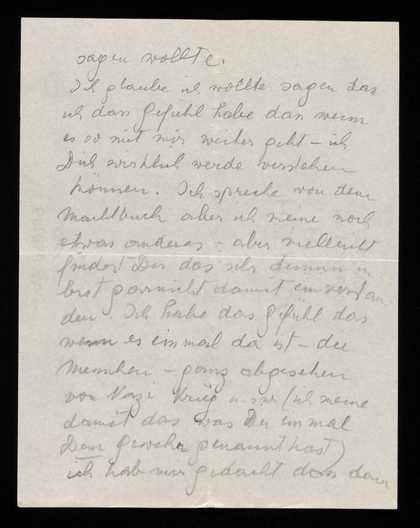 sagen wollte.
Ich glaube ich wollte sagen das
ich das Gefühl habe das wenn
es so mit mir weiter geht – ich
Dich wirklich werde verstehen
können. Ich spreche von dem
Machtbuch aber ich meine noch
etwas anderes – aber vielleicht
findest Du das sehr dumm u.
bist garnicht damit einverstan
den. Ich habe das Gefühl das
wenn es einmal da ist – die
Menschen – ganz abgesehen
von Nazi Krieg u.s.w (ich meine
damit das was Du einmal
Dein genannt hast)
ich hab mir gedacht dass dann